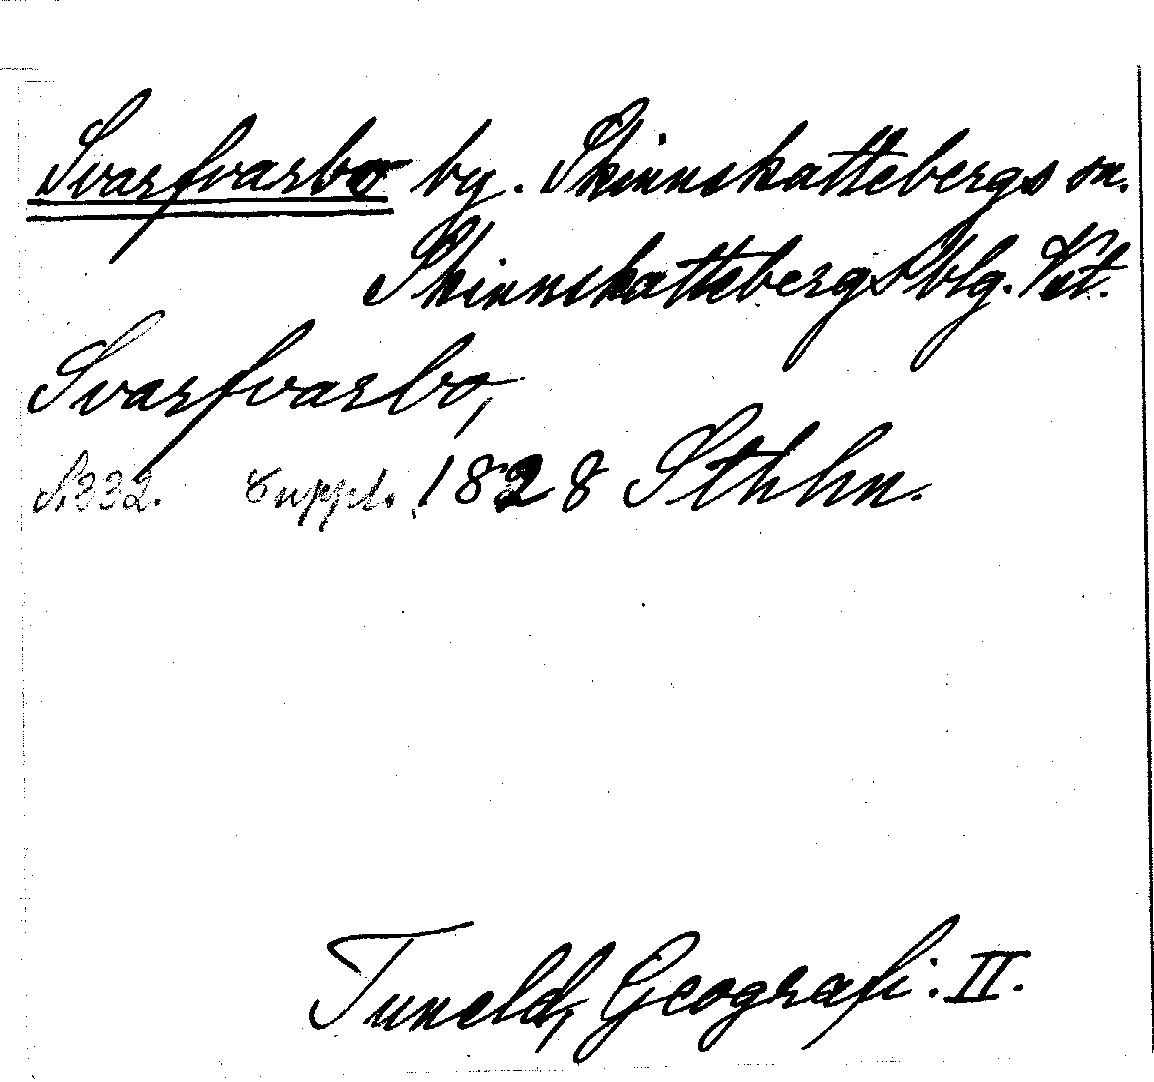 Svarfvarbo by. Skinnskattebergs sn.
Skinnskattebergs blg. Vst.
Svarfvarbo,
S.332. Suppl. 1828 Sthlm.
Tuneld, Geografi. II.